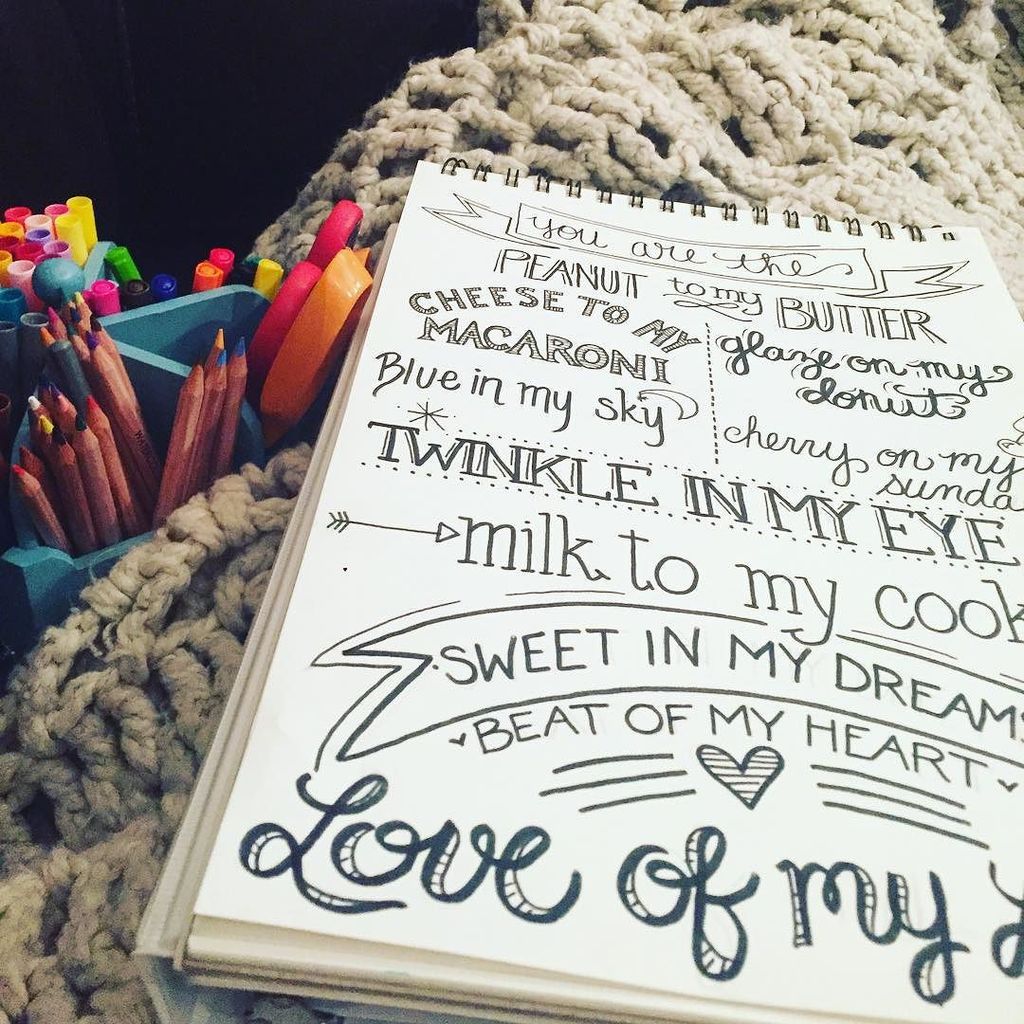 you are the
PEANUT to my BUTTER
CHEESE TO MY
MACARONI
Blue in my sky
glaze on my
donut
cherry on my
sunda
TWINKLE IN MY EYE
milk to my cook
SWEET IN MY DREAMS
BEAT OF MY HEART
Love of my L